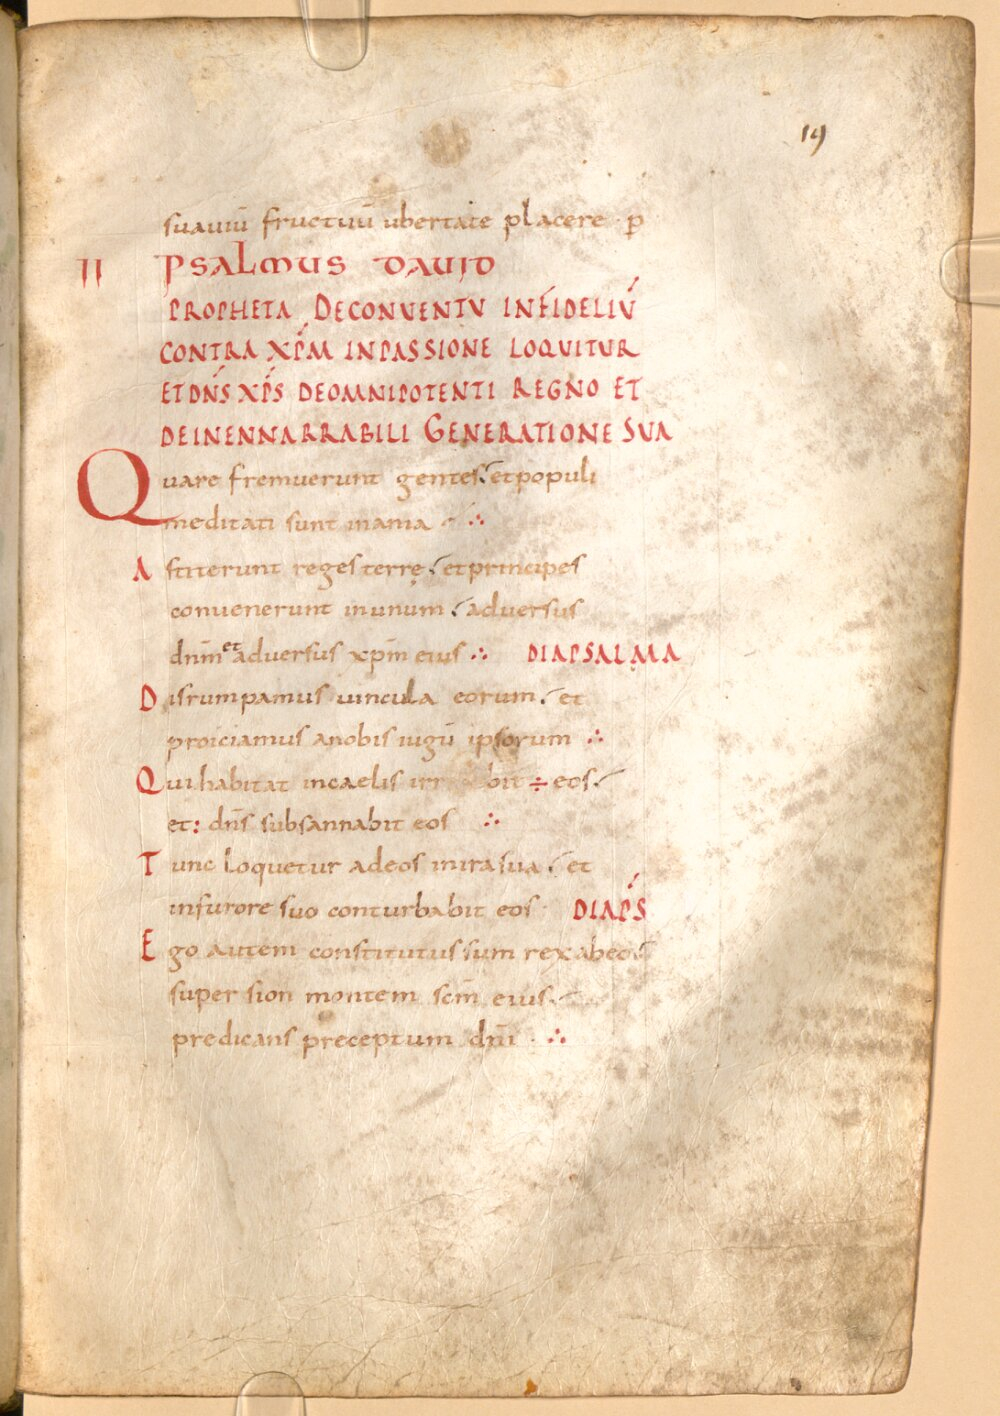 19
suauiū fructuū ubertate placere · p̄
II PSALMUS DAUID
PROPHETA DECONUENTU INFIDELIŪ
CONTRA XP̄M INPASSIONE LOQUITUR
ETDN̄S XP̄S DEOMNIPOTENTI REGNO ET
DEINENNARRABILI GENERATIONE SUA
Quare fremuerunt gentes etpopuli
meditati sunt inania ∴
Astiterunt reges terrę etprincipes
conuenerunt inunum aduersus
dnm̄ et aduersus xpm̄ eius ∴ DIAPSALMA
Disrumpamus uincula eorum et
proiciamus anobis iugū ipsorum ∴
Qui habitat incaelis bit ÷ eos
et: dn̄s subsannabit eos ∴
Tunc loquetur adeos inirasua et
infurore suo conturbabit eos · DIAPS̄
Ego autem constitutus sum rex abeo
super sion montem scm̄ eius
predicans preceptum dnī ∴